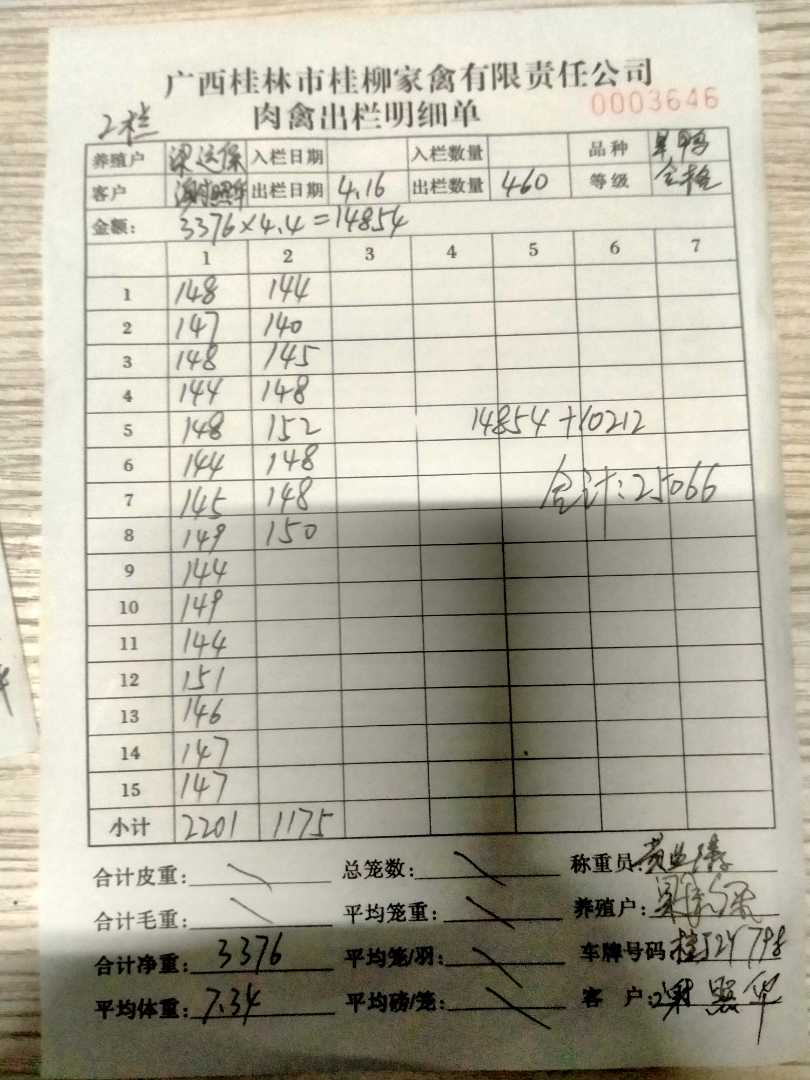 广西桂林市桂柳家禽有限责任公司
肉禽出栏明细单 0003646
2栏
养殖户 梁运保 入栏日期 入栏数量 品种 鸭
客户 谢照华 出栏日期 4.16 出栏数量 460 等级 合格
金额: 3376×4.4=14854
1 2 3 4 5 6 7
1 148 144
2 147 140
3 148 145
4 144 148
5 148 152 14854+10212
6 144 148
7 145 148 合计:25066
8 149 150
9 144
10 149
11 144
12 151
13 146
14 147
15 147
小计 2201 1175
合计皮重: 总笼数: 称重员: 黄
合计毛重: 平均笼重: 养殖户: 梁运保
合计净重: 3376 平均笼/羽: 车牌号码: 桂J24798
平均体重: 7.34 平均磅/笼: 客户: 谢照华